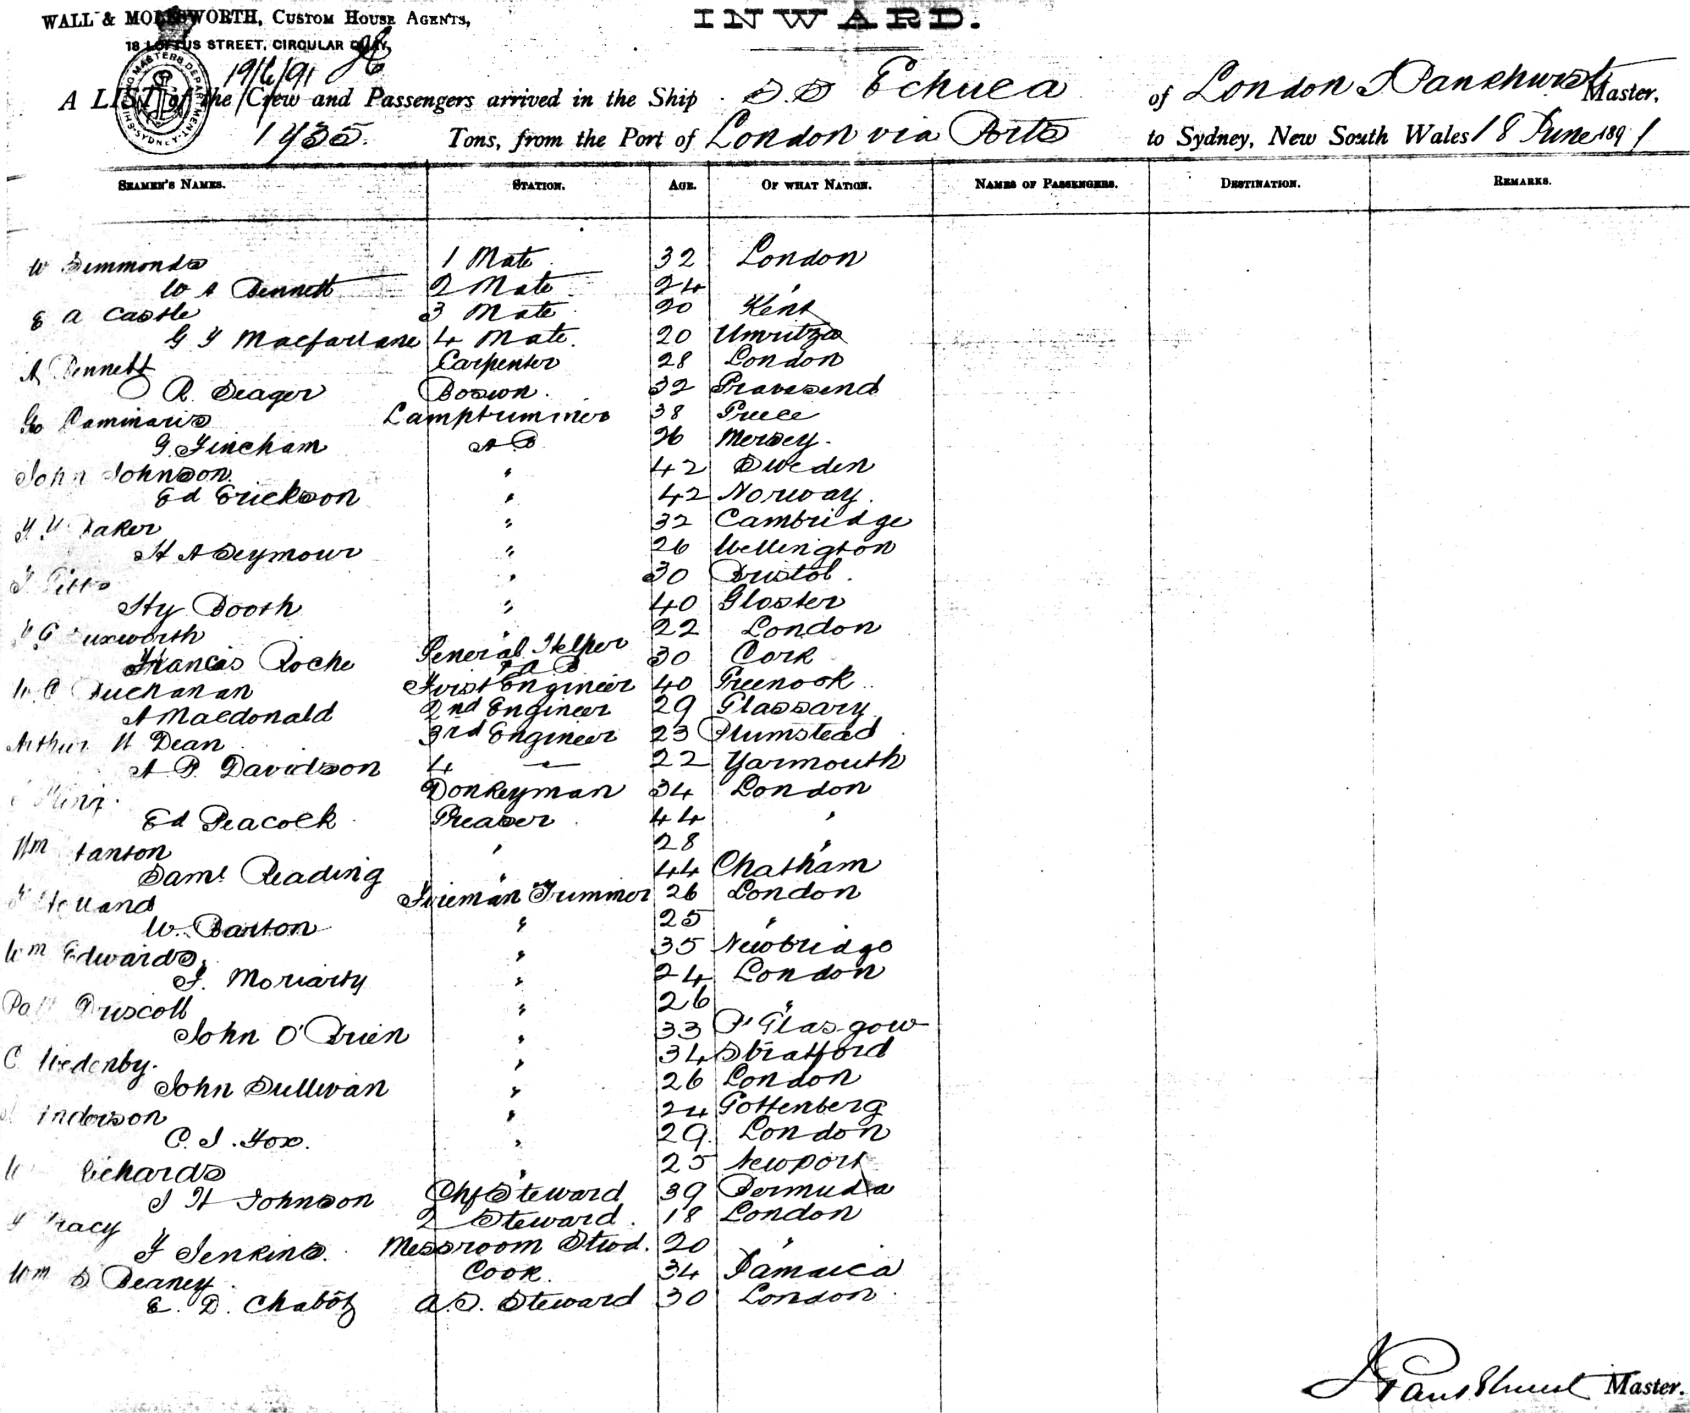 WALL & MOLESWORTH, CUSTOM HOUSE AGENTS,
18 LOFTUS STREET, CIRCULAR QUAY,
INWARD.
SHIPPING MASTERS DEPARTMENT SYDNEY
19/6/91
A LIST of the Crew and Passengers arrived in the Ship S.S Echuca of London J Pankhurst Master,
1435. Tons, from the Port of London via Ports to Sydney, New South Wales 18 June 1891
SEAMEN'S NAMES. STATION. AGE. OF WHAT NATION. NAMES OF PASSENGERS. DESTINATION. REMARKS.
W Simmonds 1 Mate 32 London
W A Bennett 2 Mate 24 "
E A Castle 3 Mate 20 Kent
G F Macfarlane 4 Mate. 20 Umritza
A Bennett Carpenter 28 London
R. Seager Boswn. 32 Gravesend
Geo Caminaris Lamptrimmer 38 Greece
G. Fincham A B 26 Mersey.
John Johnson. " 42 Sweden
Ed Erickson " 42 Norway.
Baker " 32 Cambridge
H A Seymour " 26 Wellington
Pitts " 30 Bristol.
Hy Booth " 40 Gloster
" 22 London
Francis Roche General Helper & A B 30 Cork
W. C Buchanan First Engineer 40 Greenock
A Macdonald 2nd Engineer 29 Glassary
Arthur W Dean 3rd Engineer 23 Plumstead
A P. Davidson 4 — 22 Yarmouth
King. Donkeyman 34 London
Ed Peacock Greaser 44 "
Wm Stanton " 28 "
Saml Reading " 44 Chatham
Holland Fireman Trimmer 26 London
W. Barton " 25 "
Wm Edwards, " 35 Newbridge
J. Moriarty " 24 London
Pat Driscoll " 26 "
John O'Brien " 33 P Glasgow
C " 34 Stratford
John Sullivan " 26 London
Anderson " 24 Gottenberg
C. J. Fox. " 29. London
Richards " 25 Newport
J H Johnson Chf Steward 39 Bermuda
Tracy 2 Steward. 18 London
F Jenkins. Messroom Stwd. 20 "
Wm S Deaney. Cook. 34 Jamaica
E. D. Chabot A.S. Steward 30 London
J Pankhurst Master.